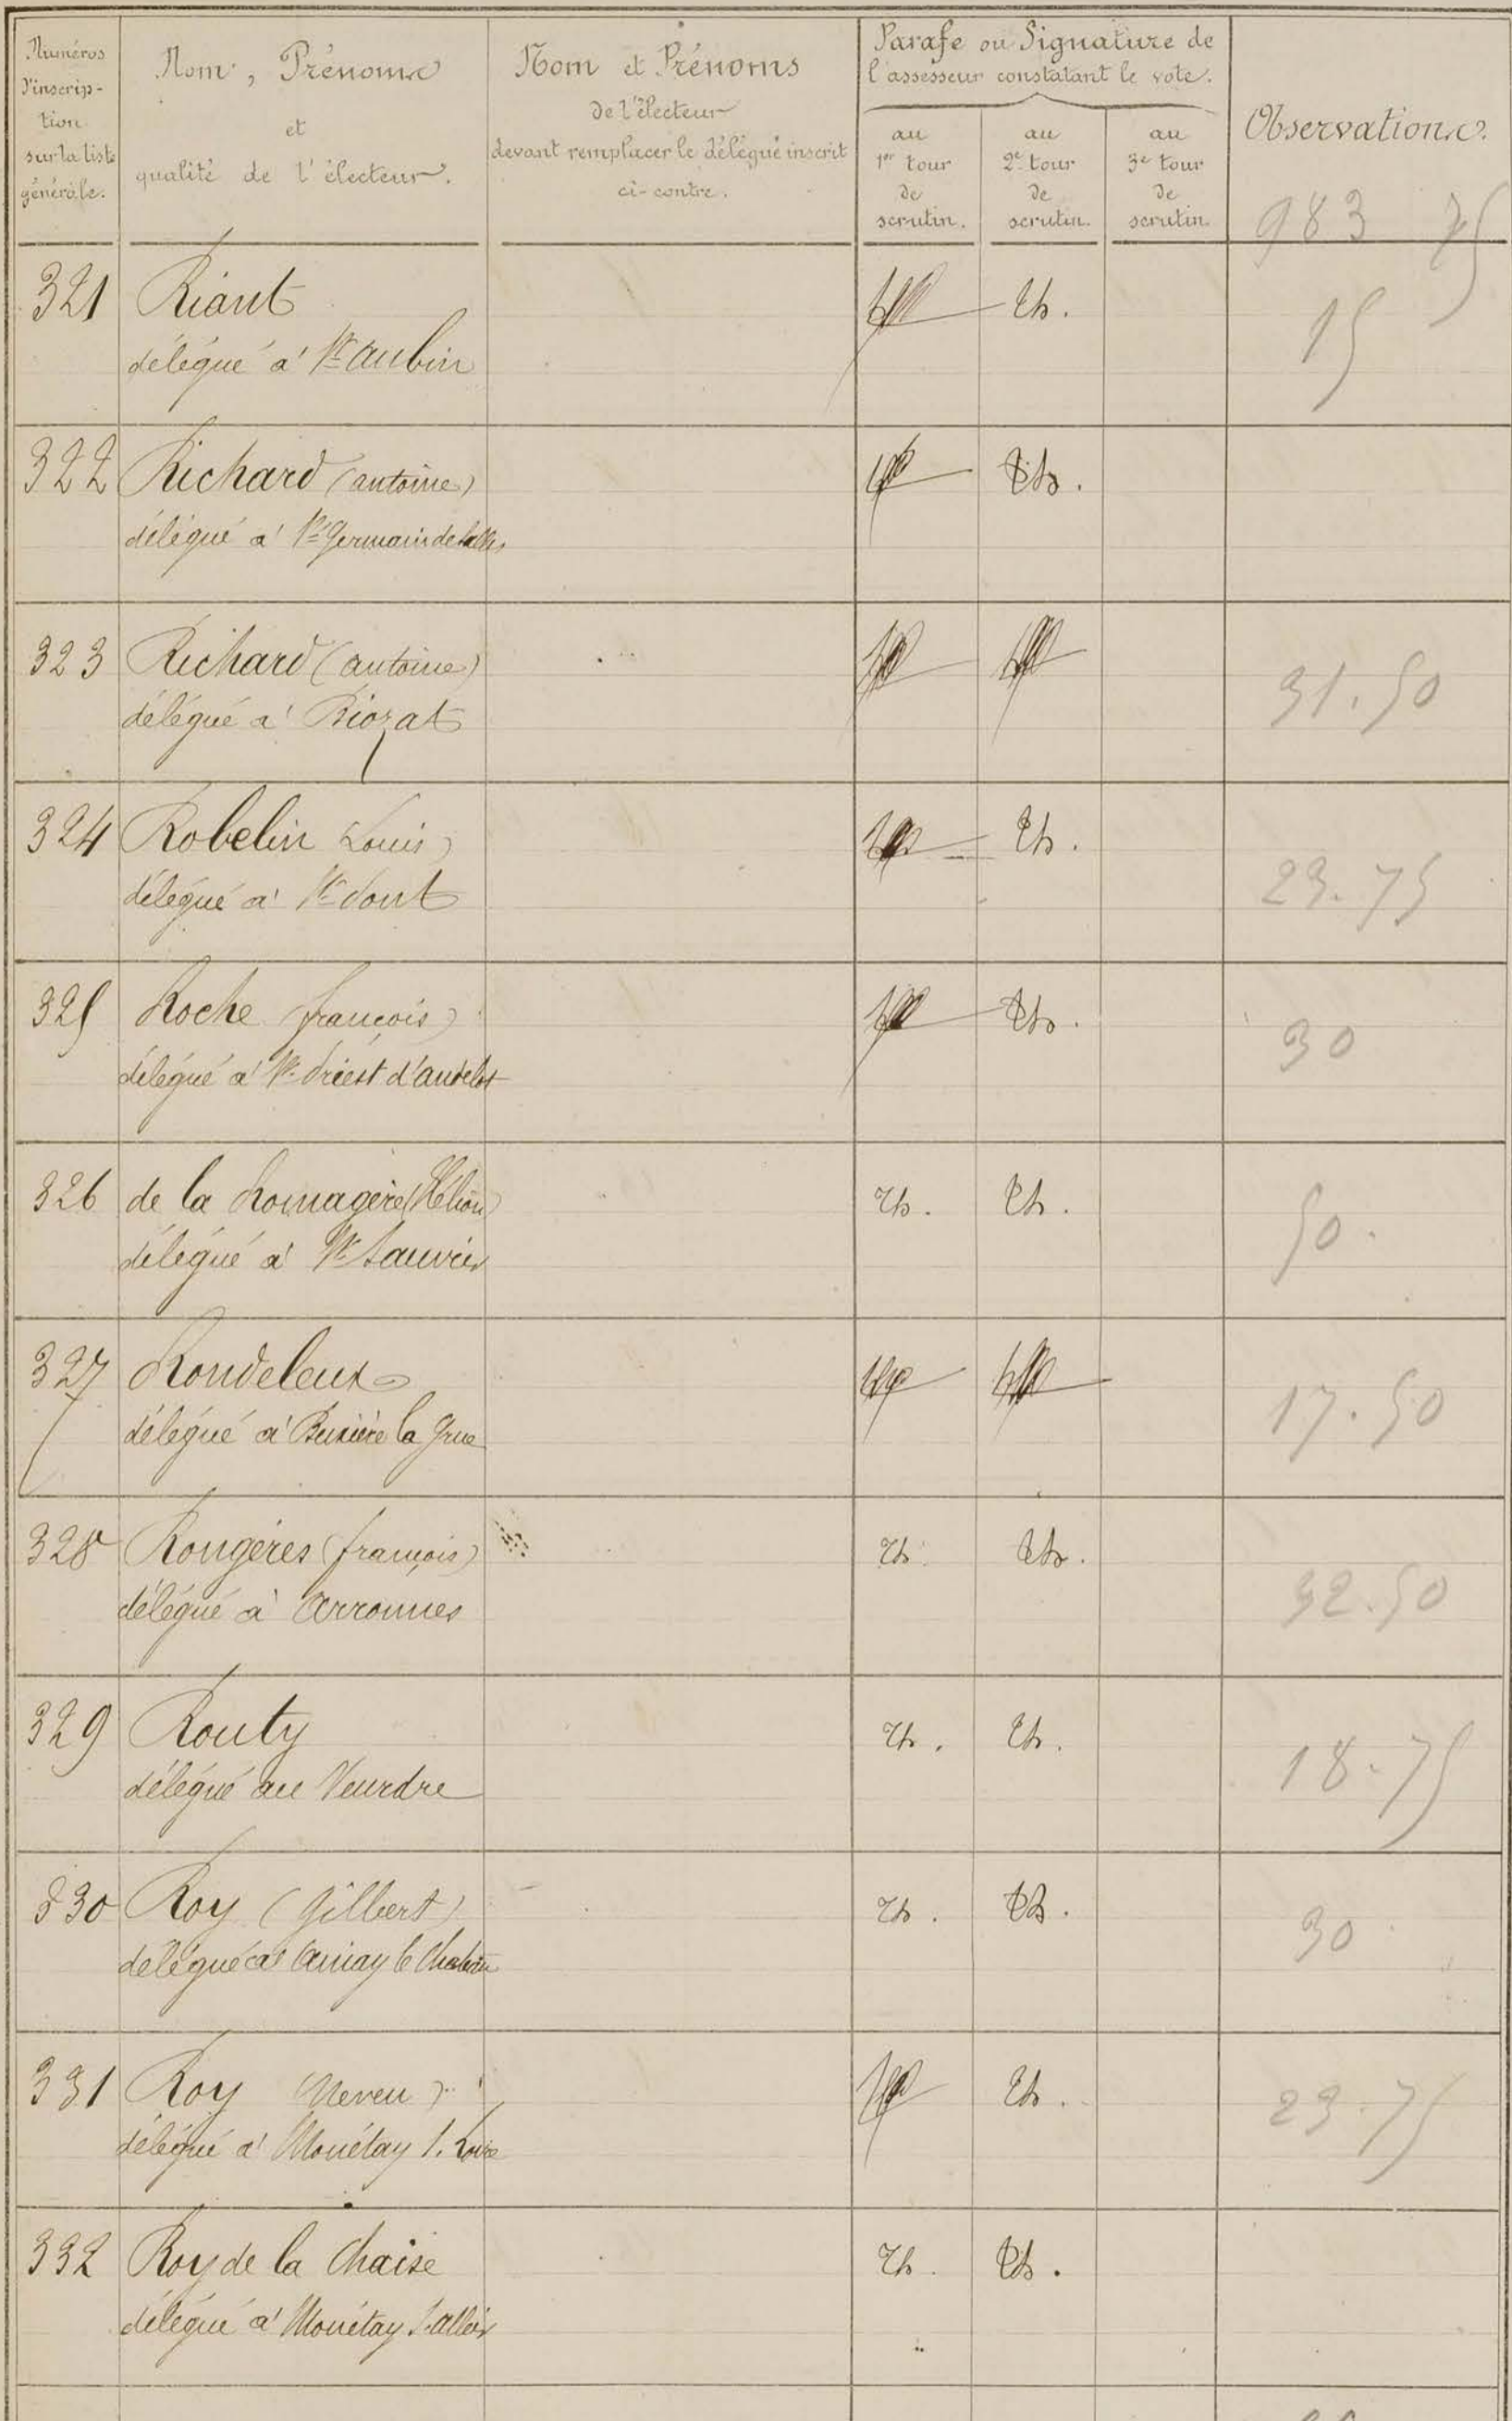 Numéros
d'inscrip-
tion
sur la liste
générale.
Nom, Prénoms
et
qualité de l'électeur.
Nom et Prénoms
de l'électeur
devant remplacer le délégué inscrit
ci-contre.
Parafe ou Signature de
l'assesseur constatant le vote.
au
1er tour
de
scrutin.
au
2e tour
de
scrutin.
au
3e tour
de
scrutin.
Observations.
983 75
321 Riant Th. 15
délégué à St Aubin
322 Richard (antoine) Th.
délégué à St Germain de Salles
323 Richard (antoine) 31.50
délégué à Biozat
324 Robelin Louis) Th. 23.75
délégué à St Pont
325 Roche (françois) Th. 30
délégué à St Priest d'andelot
326 de la Romagère (Hélion) Th. Th. 50.
délégué à St Sauvier
327 Rondeleux 17.50
délégué à Buxière la Grue
328 Rougères (françois) Th. Th. 32.50
délégué à Arronnes
329 Routy Th. Th. 18.75
délégué au Veurdre
330 Roy (Gilbert) Th. Th. 30
délégué à Ainay le Château
331 Roy (Neveu) Th. 23.75
délégué à Monétay s. Loire
332 Roy de la Chaise Th. Th.
délégué à Monétay s. allier